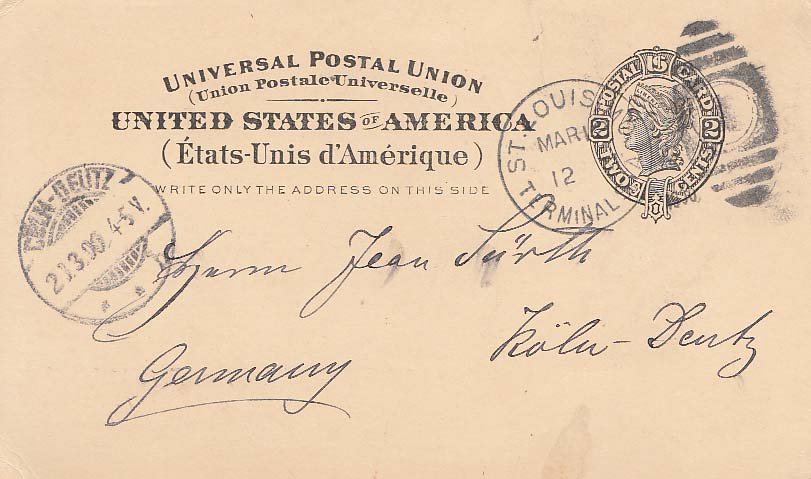 UNIVERSAL POSTAL UNION
(Union Postale Universelle)
UNITED STATES OF AMERICA
(États-Unis d'Amérique)
WRITE ONLY THE ADDRESS ON THIS SIDE
POSTAL CARD
2 2
TWO CENTS
ST. LOUIS
MAR
12
TERMINAL
CÖLN-DEUTZ
4-5 V.
Herrn Jean Fürth
Köln-Deutz
Germany